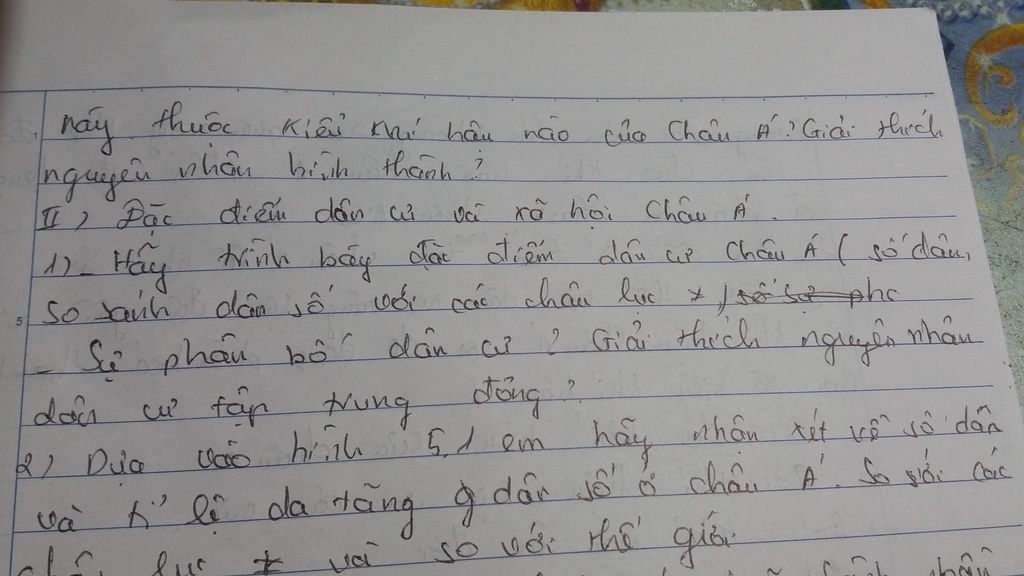 này thuộc kiểu khí hậu nào của Châu Á? Giải thích
nguyên nhân hình thành?
II) Đặc điểm dân cư và xã hội Châu Á.
1)_ Hãy trình bày đặc điểm dân cư Châu Á ( số dân,
so sánh dân số với các châu lục *)
_ Sự phân bố dân cư? Giải thích nguyên nhân
dân cư tập trung đông?
2) Dựa vào hình 5.1 em hãy nhận xét về số dân
và tỉ lệ da tăng g dân số ở châu Á. So với các
lục * và so với thế giới.